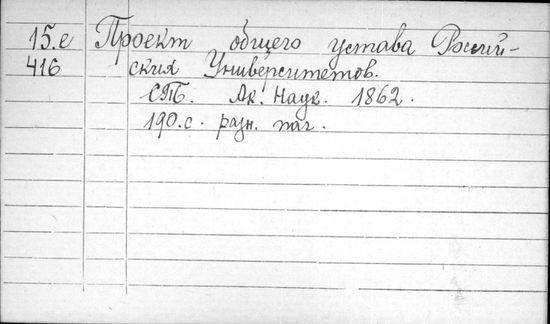 15.е Проект общего устава Россий-
416 ских Университетов.
СПБ. Ак. Наук. 1862.
190.с. разн. паг.